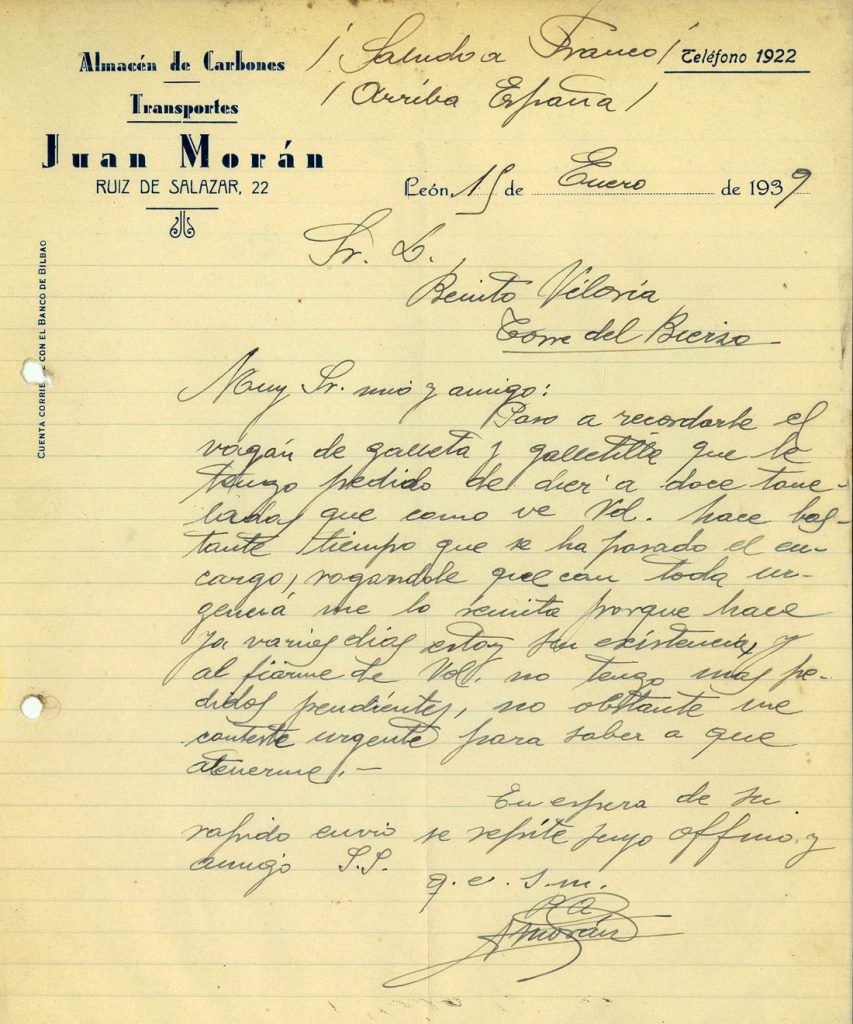 Almacén de Carbones
Transportes
Juan Morán
RUIZ DE SALAZAR, 22
¡Saludo a Franco!
¡Arriba España!
Teléfono 1922
León, 15 de Enero de 1939
CUENTA CORRIE CON EL BANCO DE BILBAO
Sr. D.
Benito Viloria
Torre del Bierzo
Muy Sr. mio y amigo:
Paso a recordarle el
vagón de galleta y galletilla que le
tengo pedido de diez a doce tone-
ladas que como ve Vd. hace bas-
tante tiempo que se ha pasado el en-
cargo, rogandole que con toda ur-
gencia me lo remita porque hace
ya varios dias estoy sin existencias y
al fiarme de Vd. no tengo mas pe-
didos pendientes, no obstante me
conteste urgente para saber a que
atenerme.-
En espera de su
rapido envio se repite suyo affmo. y
amigo S.S.
q. e. s. m.
P.A.
Morán